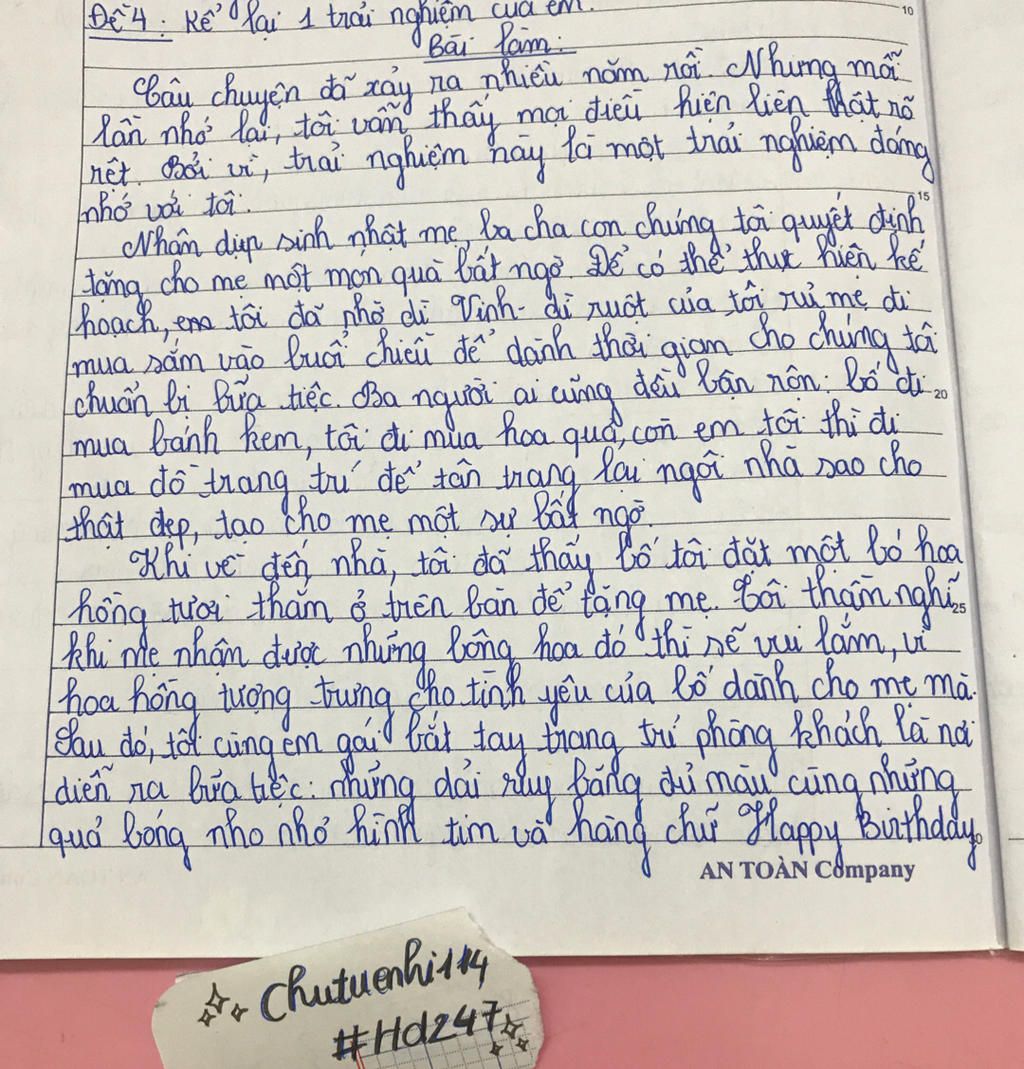 Đề 4: Kể lại 1 trải nghiệm của em.
10
Bài làm:
Câu chuyện đã xảy ra nhiều năm rồi. Nhưng mỗi
lần nhớ lại, tôi vẫn thấy mọi điều hiện liên thật rõ
rệt. Bởi vì, trải nghiệm này là một trải nghiệm đáng
15
nhớ với tôi.
Nhân dịp sinh nhật mẹ, ba cha con chúng tôi quyết định
tặng cho mẹ một món quà bất ngờ. Để có thể thực hiện kế
hoạch, em tôi đã nhờ dì Vinh - dì ruột của tôi rủ mẹ đi
mua sắm vào buổi chiều để dành thời gian cho chúng tôi
chuẩn bị bữa tiệc. Ba người ai cũng đều bận rộn: bố đi
20
mua bánh kem, tôi đi mua hoa quả, còn em tôi thì đi
mua đồ trang trí để tân trang lại ngôi nhà sao cho
thật đẹp, tạo cho mẹ một sự bất ngờ.
Khi về đến nhà, tôi đã thấy bố tôi đặt một bó hoa
hồng tươi thắm ở trên bàn để tặng mẹ. Tôi thầm nghĩ
25
khi mẹ nhận được những bông hoa đó thì sẽ vui lắm, vì
hoa hồng tượng trưng cho tình yêu của bố dành cho mẹ mà.
Sau đó, tôi cùng em gái bắt tay trang trí phòng khách là nơi
diễn ra bữa tiệc: những dải ruy băng đủ màu cùng những
quả bóng nho nhỏ hình tim và hàng chữ Happy Birthday
AN TOÀN Company
Chutuenhi114
#Hd247